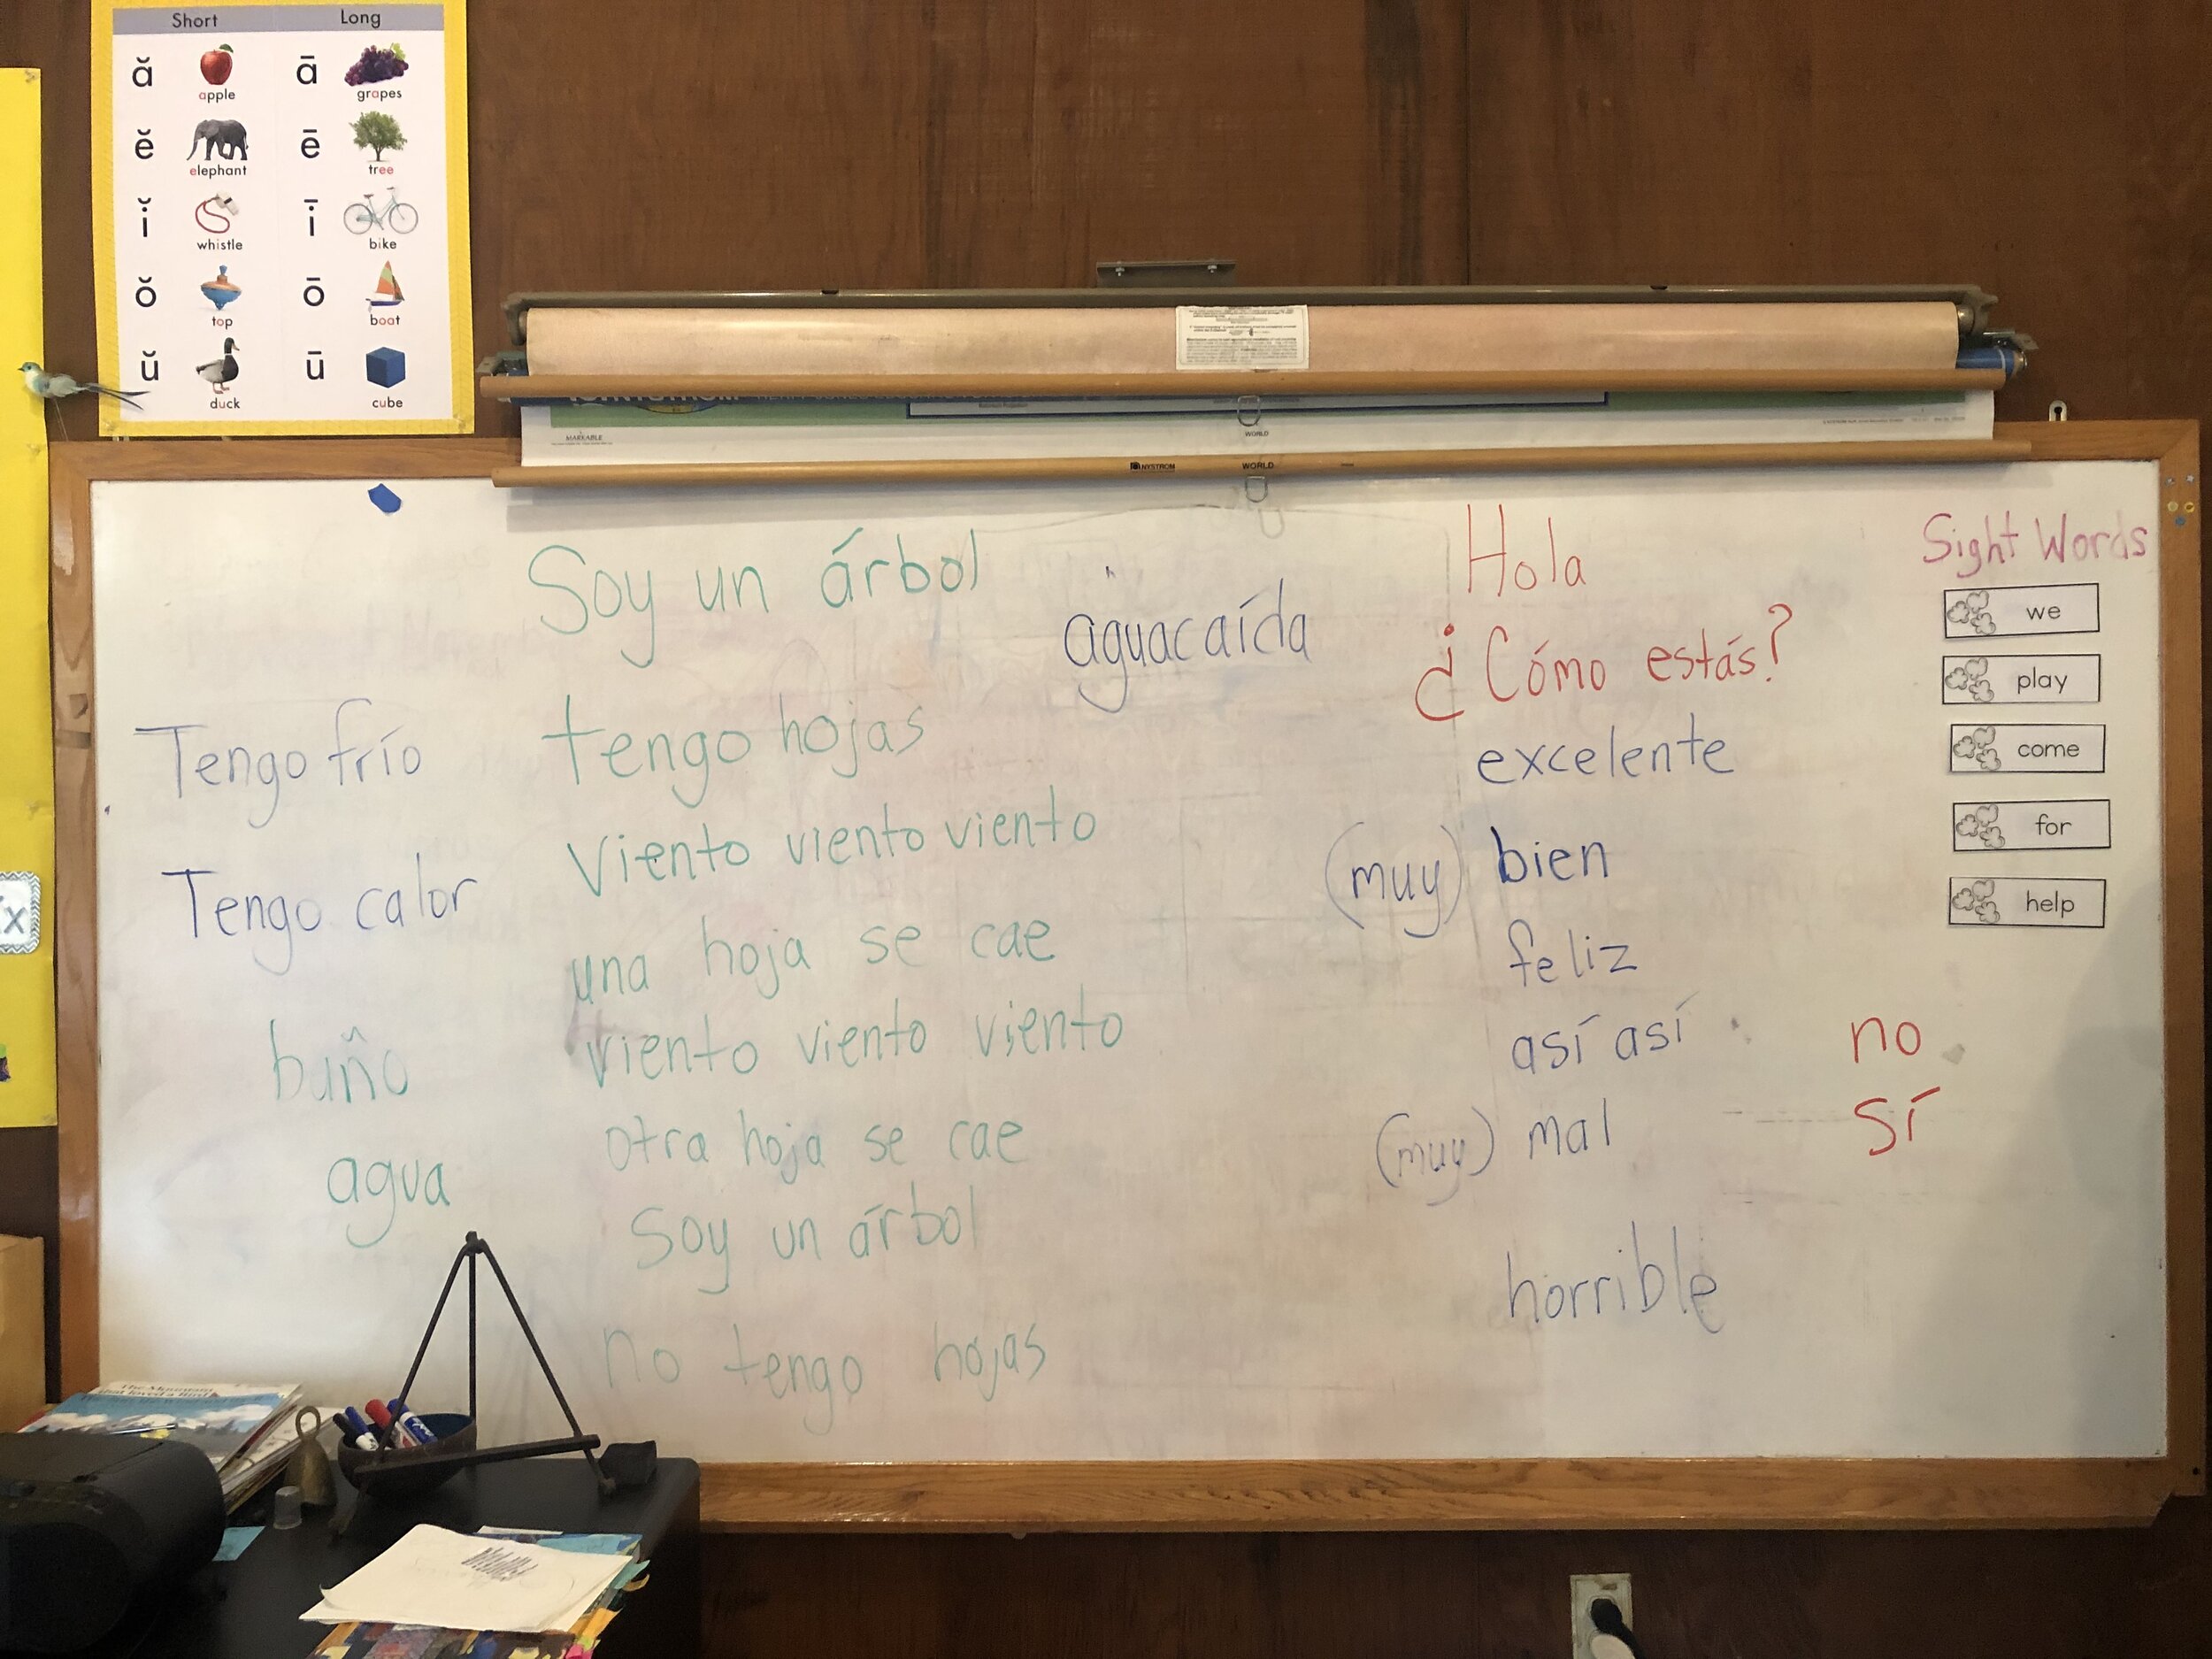 Short Long
ă apple ā grapes
ĕ elephant ē tree
ĭ whistle ī bike
ŏ top ō boat
ŭ duck ū cube
MARKABLE
WORLD
NYSTROM WORLD
Soy un árbol
tengo hojas
viento viento viento
una hoja se cae
viento viento viento
otra hoja se cae
Soy un árbol
no tengo hojas
Tengo frío
Tengo calor
baño
agua
aguacaída
Hola
¿Cómo estás?
excelente
(muy) bien
feliz
así así
(muy) mal
horrible
no
sí
Sight Words
we
play
come
for
help
The Mountain
that loved a Bird